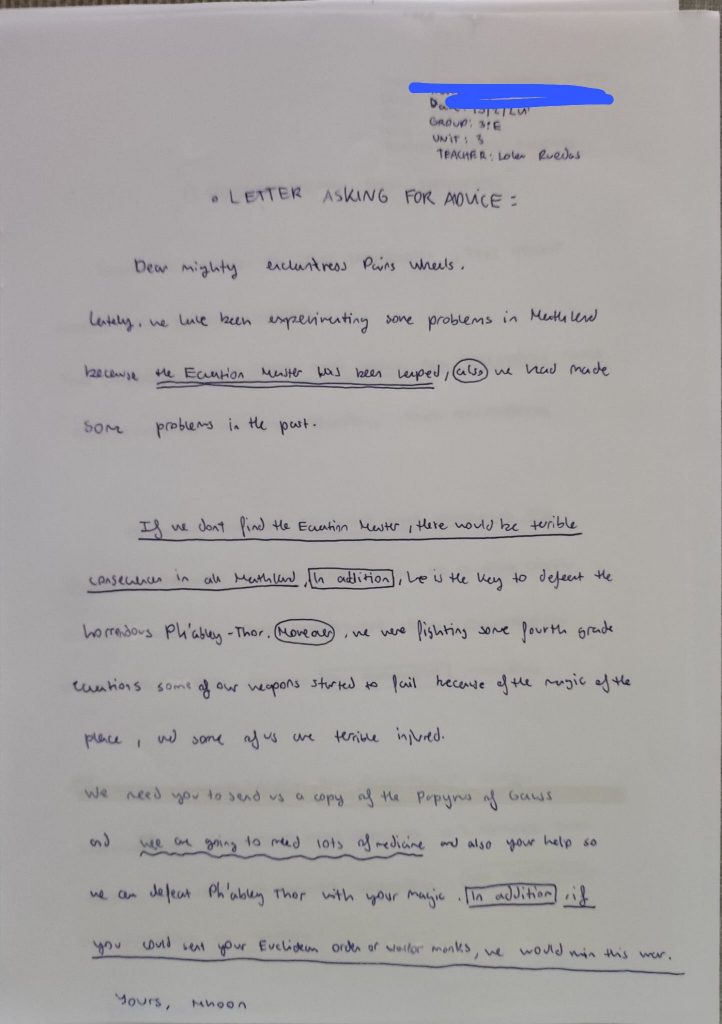 GROUP: 3ºE
UNIT: 3
TEACHER: Loles Ruedas
• LETTER ASKING FOR ADVICE:
Dear mighty enchantress Pairis wheels.
Lately, we have been experimenting some problems in Mathland
because the Ecuation Master has been keaped, also we had made
some problems in the past.
If we dont find the Ecuation Master, there would be terrible
consecuences in all Mathland, In addition, he is the key to defeat the
horrendous Ph'abley-Thor. Moreover, we were fighting some fourth grade
ecuations some of our weapons started to fail because of the magic of the
place, and some of us are terrible injured.
We need you to send us a copy of the Papyrus of Gauss
and we are going to need lots of medicine and also your help so
we can defeat Ph'abley Thor with your magic. In addition, if
you could sent your Euclidean order of warlor monks, we would win this war.
Yours, Mhoon